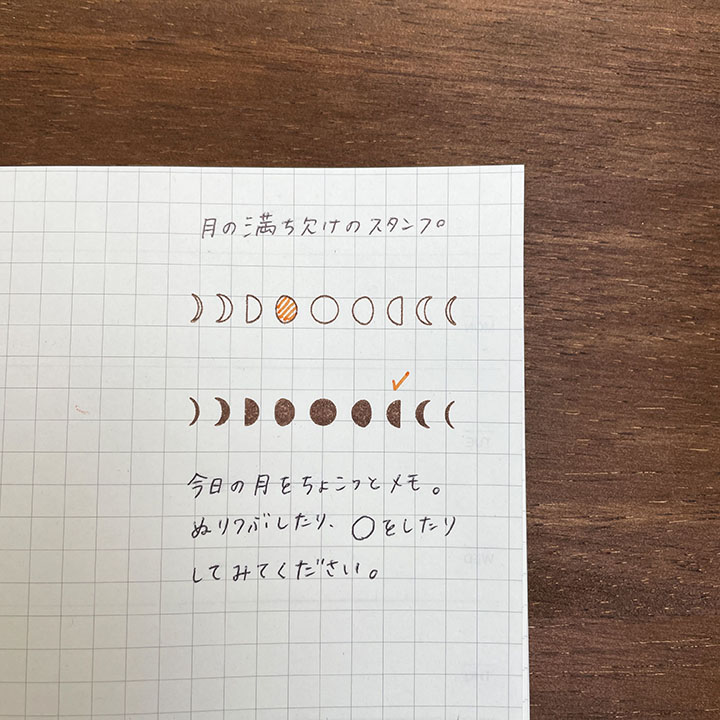 月の満ち欠けのスタンプ。
今日の月をちょこっとメモ。
ぬりつぶしたり、◯をしたり
してみてください。